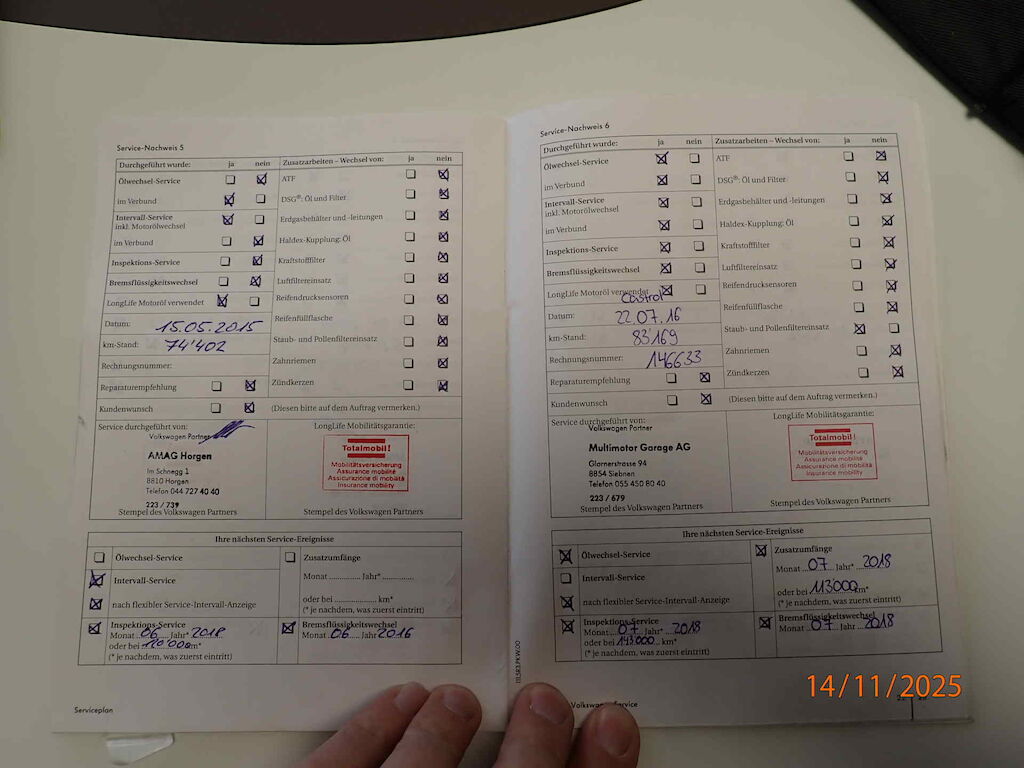 Service-Nachweis 5
Durchgeführt wurde: ja nein
Ölwechsel-Service
im Verbund
Intervall-Service
inkl. Motorölwechsel
im Verbund
Inspektions-Service
Bremsflüssigkeitswechsel
LongLife Motoröl verwendet
Datum: 15.05.2015
km-Stand: 74'402
Rechnungsnummer:
Reparaturempfehlung
Kundenwunsch
Zusatzarbeiten – Wechsel von: ja nein
ATF
DSG®: Öl und Filter
Erdgasbehälter und -leitungen
Haldex-Kupplung: Öl
Kraftstofffilter
Luftfiltereinsatz
Reifendrucksensoren
Reifenfüllflasche
Staub- und Pollenfiltereinsatz
Zahnriemen
Zündkerzen
(Diesen bitte auf dem Auftrag vermerken.)
Service durchgeführt von:
Volkswagen Partner
AMAG Horgen
Im Schnegg 1
8810 Horgen
Telefon 044 727 40 40
223 / 739
Stempel des Volkswagen Partners
LongLife Mobilitätsgarantie:
Totalmobil!
Mobilitätsversicherung
Assurance mobilité
Assicurazione di mobilità
Insurance mobility
Stempel des Volkswagen Partners
Ihre nächsten Service-Ereignisse
Ölwechsel-Service
Intervall-Service
nach flexibler Service-Intervall-Anzeige
Inspektions-Service
Monat 06 Jahr*
oder bei km*
(* je nachdem, was zuerst eintritt)
Zusatzumfänge
Monat ............ Jahr* ............
oder bei ............ km*
(* je nachdem, was zuerst eintritt)
Bremsflüssigkeitswechsel
Monat 06 Jahr 2016
Serviceplan
Service-Nachweis 6
Durchgeführt wurde: ja nein
Ölwechsel-Service
im Verbund
Intervall-Service
inkl. Motorölwechsel
im Verbund
Inspektions-Service
Bremsflüssigkeitswechsel
LongLife Motoröl verwendet
Castrol
Datum: 22.07.16
km-Stand: 83'169
Rechnungsnummer: 146633
Reparaturempfehlung
Kundenwunsch
Zusatzarbeiten – Wechsel von: ja nein
ATF
DSG®: Öl und Filter
Erdgasbehälter und -leitungen
Haldex-Kupplung: Öl
Kraftstofffilter
Luftfiltereinsatz
Reifendrucksensoren
Reifenfüllflasche
Staub- und Pollenfiltereinsatz
Zahnriemen
Zündkerzen
(Diesen bitte auf dem Auftrag vermerken.)
Service durchgeführt von:
Volkswagen Partner
Multimotor Garage AG
Glarnerstrasse 94
8854 Siebnen
Telefon 055 450 80 40
223 / 679
Stempel des Volkswagen Partners
LongLife Mobilitätsgarantie:
Totalmobil!
Mobilitätsversicherung
Assurance mobilité
Assicurazione di mobilità
Insurance mobility
Stempel des Volkswagen Partners
Ihre nächsten Service-Ereignisse
Ölwechsel-Service
Intervall-Service
nach flexibler Service-Intervall-Anzeige
Inspektions-Service
Monat 07 Jahr* 2018
oder bei 113000 km*
(* je nachdem, was zuerst eintritt)
Zusatzumfänge
Monat 07 Jahr* 2018
oder bei 113000 km*
(* je nachdem, was zuerst eintritt)
Bremsflüssigkeitswechsel
Monat 07 Jahr 2018
14/11/2025